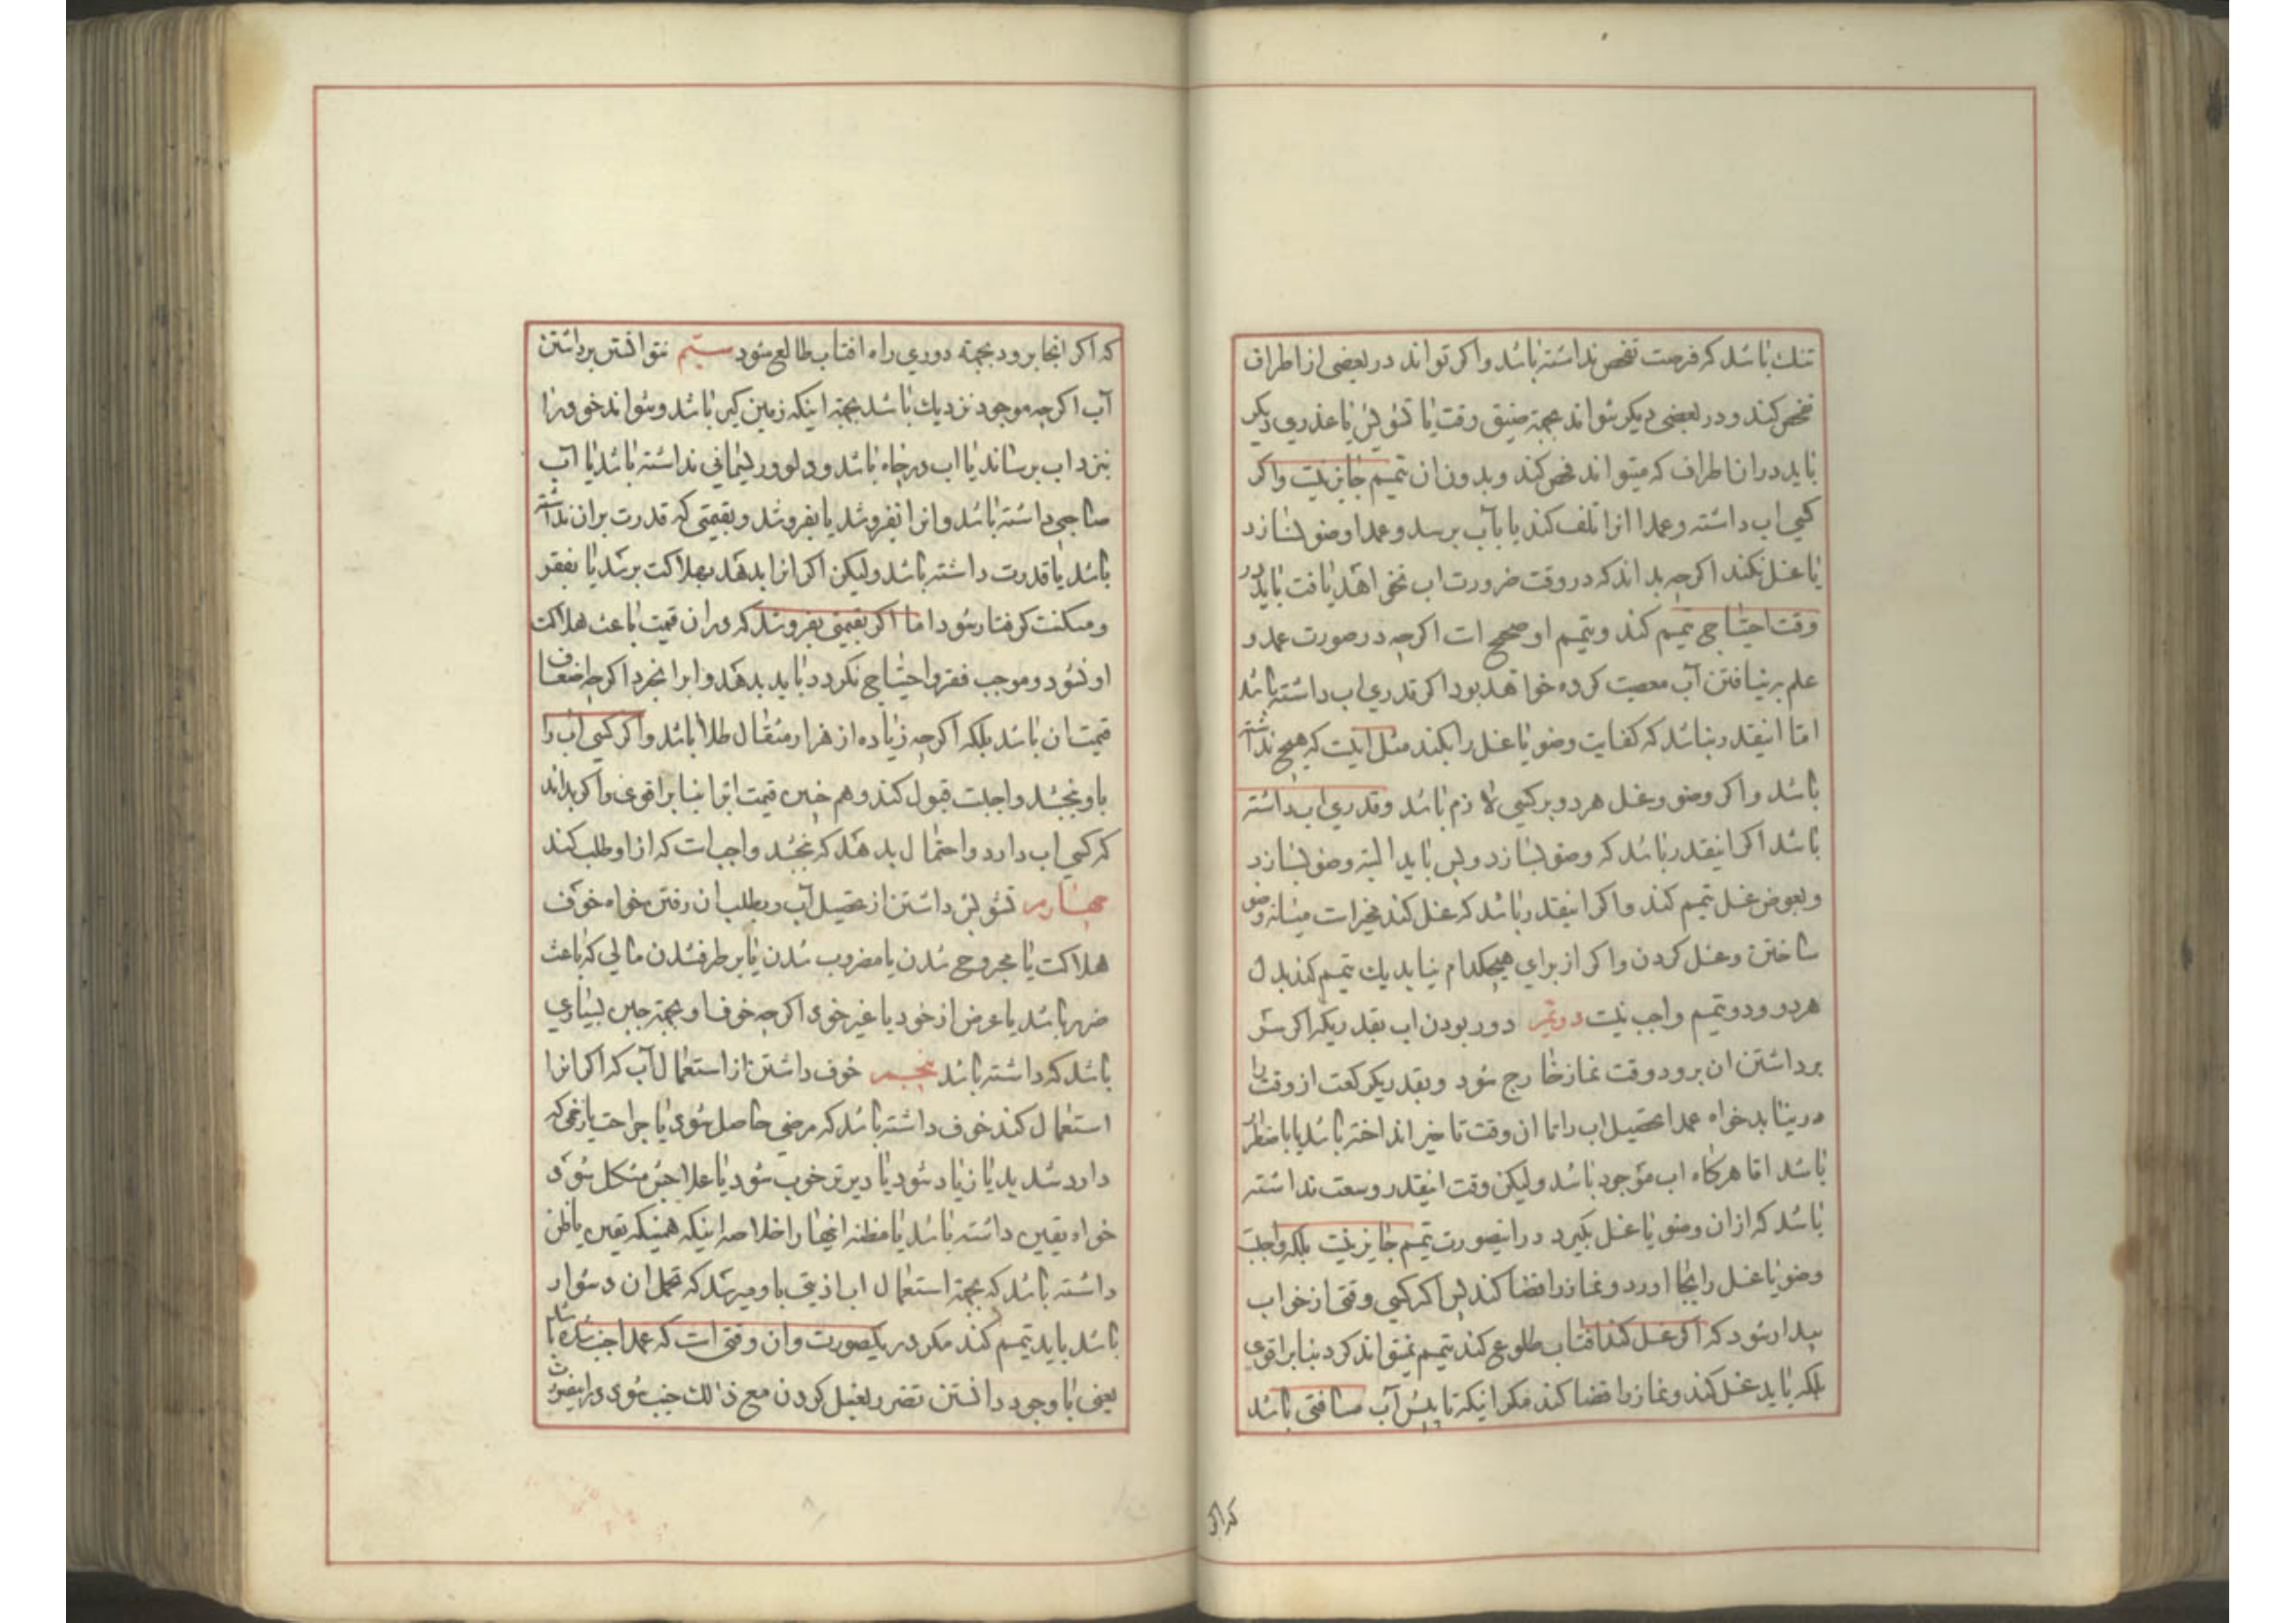 تنك باشد كه فرصت تفحص نداشته باشد واكر تواند در بعضى از اطراف
تفحص كند و در بعضى ديكر نتواند بجهة ضيق وقت يا تشويش يا عذري ديكر
بايد دران اطراف كه ميتواند تفحص كند و بدون ان تيمم جايز نيست واكر
كسى اب داشته وعمدا انرا تلف كند يا بآب برسد وعمدا وضو نسازد
يا غسل نكند اكرچه بداند كه در وقت ضرورت اب نخواهد يافت بايد در
وقت احتياج تيمم كند وتيمم او صحيح است اكرچه در صورت عمد و
علم بر نيافتن آب معصيت كرده خواهد بود اكر قدري اب داشته باشد
امّا اينقدر نباشد كه كفايت وضو يا غسل را بكند مثل اينست كه هيچ نداشته
باشد واكر وضو وغسل هر دو بر كسى لازم باشد وقدري اب داشته
باشد اكر اينقدر باشد كه وضو بسازد وبس بايد البته وضو بسازد
وبعوض غسل تيمم كند واكر اينقدر باشد كه غسل كند مخيرات ميانه وضو
ساختن وغسل كردن واكر از براي هيچكدام نيابد يك تيمم كند بدل
هر دو ودو تيمم واجب نيست دوّيم دور بودن اب بقدريكه اكر بسر
برداشتن ان برود وقت نماز خارج شود وبقدر يكركعت از وقت را
در نيابد خواه عمدا تحصيل اب را تا ان وقت تاخير انداخته باشد يا باضطرار
باشد امّا هركاه اب موجود باشد وليكن وقت اينقدر وسعت نداشته
باشد كه ازان وضو يا غسل بكيرد در اينصورت تيمم جايز نيست بلكه واجبست
وضو يا غسل را بجا اورد ونماز را قضا كند پس اكر كسى وقتى از خواب
بيدار شود كه اكر غسل كند افتاب طلوع كند تيمم نميتواند كرد بنا بر اقوى
بلكه بايد غسل كند ونماز را قضا كند مكر اينكه تا پيش آب مسافتى باشد
كه اكر
كه اكر انجا برود بجهة دوري راه افتاب طالع شود سيّم نتوانستن برداشتن
آب اكرچه موجود نزديك باشد بجهة اينكه زمين كير باشد ونتواند خود را
بنزد اب برساند يا اب در چاه باشد ودلو وريسمانى نداشته باشد يا آب
صاحبى داشته باشد وانرا نفروشد يا بفروشد وبقيمتى كه قدرت بران نداشته
باشد يا قدرت داشته باشد وليكن اكر انرا بدهد بهلاكت برسد يا بفقر
ومسكنت كرفتار شود امّا اكر بقيمتى بفروشد كه دران قيمت باعث هلاكت
او نشود وموجب فقر واحتياج نكردد بايد بدهد واب را بخرد اكرچه اضعاف
قيمت ان باشد بلكه اكرچه زياده از هزار مثقال طلا باشد واكر كسى اب را
باو ببخشد واجبست قبول كند وهم چنين قيمت انرا بنا بر اقوى واكر بداند
كه كسى اب دارد واحتمال بدهد كه ببخشد واجب است كه از او طلب كند
چهارم تشويش داشتن از تحصيل آب وبطلب ان رفتن خواه خوف
هلاكت يا مجروح شدن يا مضروب شدن يا برطرفشدن مالى كه باعث
ضرر باشد يا عرض از خود يا غير خود اكرچه خوف او بجهة جبن بسياري
باشد كه داشته باشد پنجم خوف داشتن از استعمال آب كه اكر انرا
استعمال كند خوف داشته باشد كه مرضى حاصل شود يا جراحت يا زخمى كه
دارد شديد يا زياد شود يا ديرتر خوب شود يا علاجش مشكل شود
خواه يقين داشته باشد يا مظنه انها را خلاصه اينكه همينكه يقين يا ظن
داشته باشد كه بجهة استعمال اب اذيتى باو ميرسد كه تحمل ان دشوار
باشد بايد تيمم كند مكر در يكصورت وان وقتى است كه عمدا جنب شده باشد
يعنى با وجود دانستن تضرر بغسل كردن مع ذلك جنب شود در اينصورت